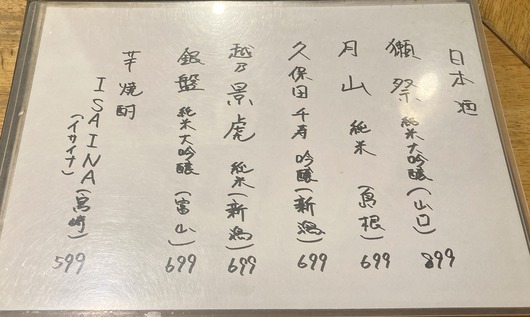 日本酒
獺祭 純米大吟醸(山口) 899
月山 純米(島根) 699
久保田 千寿 吟醸(新潟) 699
越乃景虎 純米(新潟) 699
銀盤 純米大吟醸(富山) 699
芋焼酎
ISAINA(イサイナ)(宮崎) 599